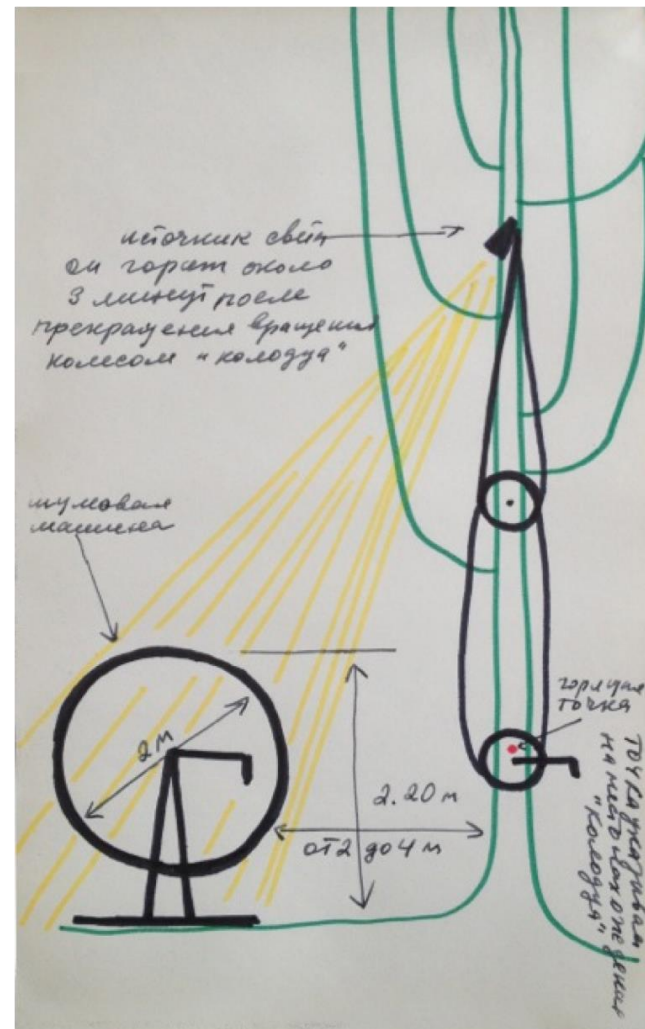 источник света
он горит около
3 минут после
прекращения вращения
колесом "колодца"
шумовая
машина
2 м
2.20 м
от 2 до 4 м
горящая
точка
точка указывает
на место нахождения
"колодца"